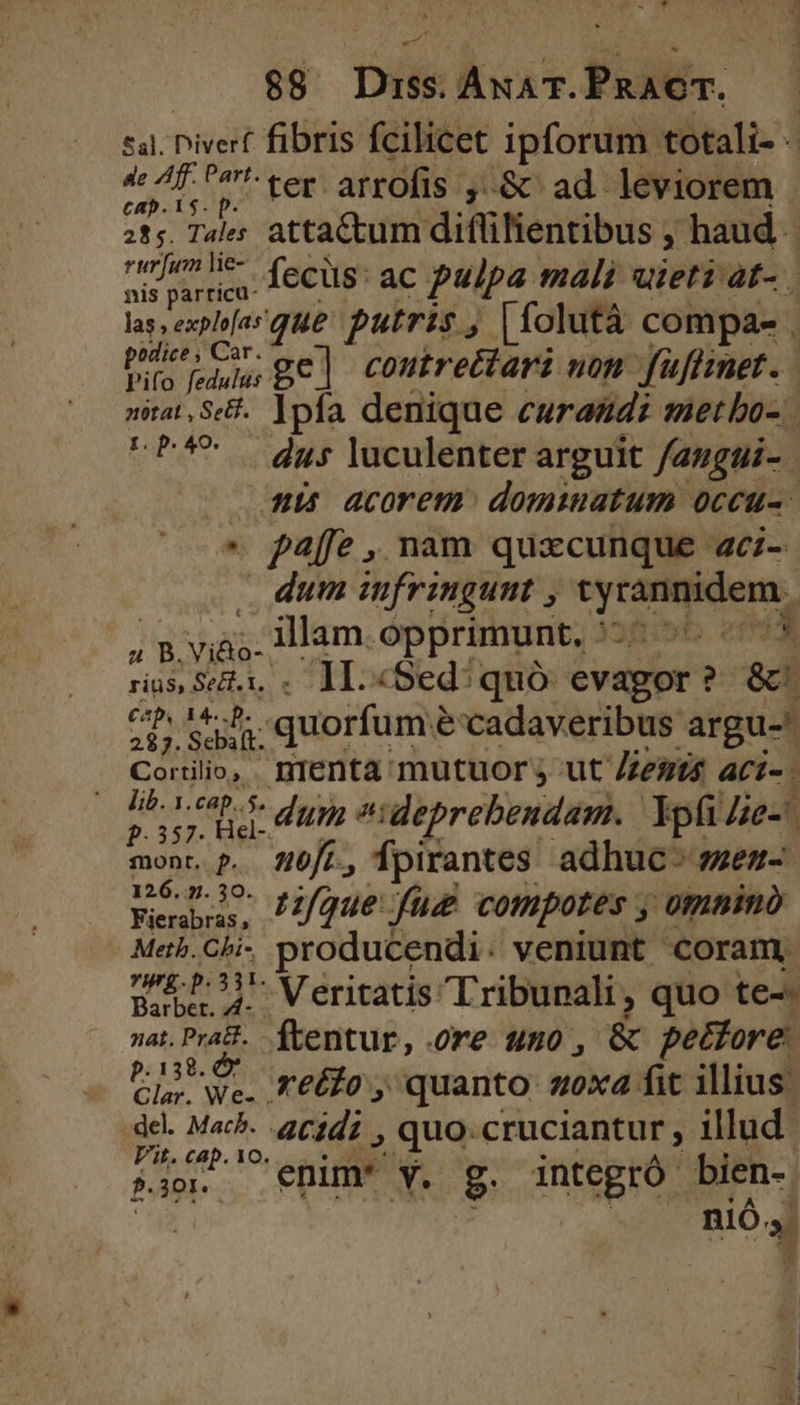 88 Diss. Anat. Pract.
fibris ſcilicet ipſorum totali-
ter arroſis, & ad leviorem
attactum diſſilientibus, haud
ſecùs ac pulpa mali vieti at-
que putris, [ſolutâ compa-
ge] contrectari non ſuſtinet.
Ipſa denique curandi metho-
dus luculenter arguit ſangui-
nis acorem dominatum occu-
paſſe, nam quæcunque aci-
dum infringunt, tyrannidem
illam opprimunt.
II. Sed quò evagor? &
quorſum è cadaveribus argu-
menta mutuor, ut lienis aci-
dum u deprehendam. Ipſi lie-
noſi, ſpirantes adhuc men-
tiſque ſuæ compotes, omninò
producendi veniunt coram
Veritatis Tribunali, quo te-
ſtentur, ore uno, & pectore
recto, quanto noxa ſit illius
acidi, quo cruciantur, illud
enim v. g. integrò bien-
niò,
Sal. Diverſ
de Aff. Part.
cap. 15. p.
285. Tales
rurſum lie-
nis particu-
las, exploſas
podice, Car.
Piſo ſedulus
notat, Sect.
1. p. 40.
u B. Victo-
rius, Sect. 1.
cap. 14. p.
287. Sebaſt.
Cortilio,
lib. 1. cap. 5.
p. 357. Hel-
mont. p.
126. n. 30.
Fierabras,
Meth. Chi-
rurg. p. 331.
Barbet. A-
nat. Pract.
p. 138. &
Clar. We-
del. Mach.
Vit. cap. 10.
p. 301.